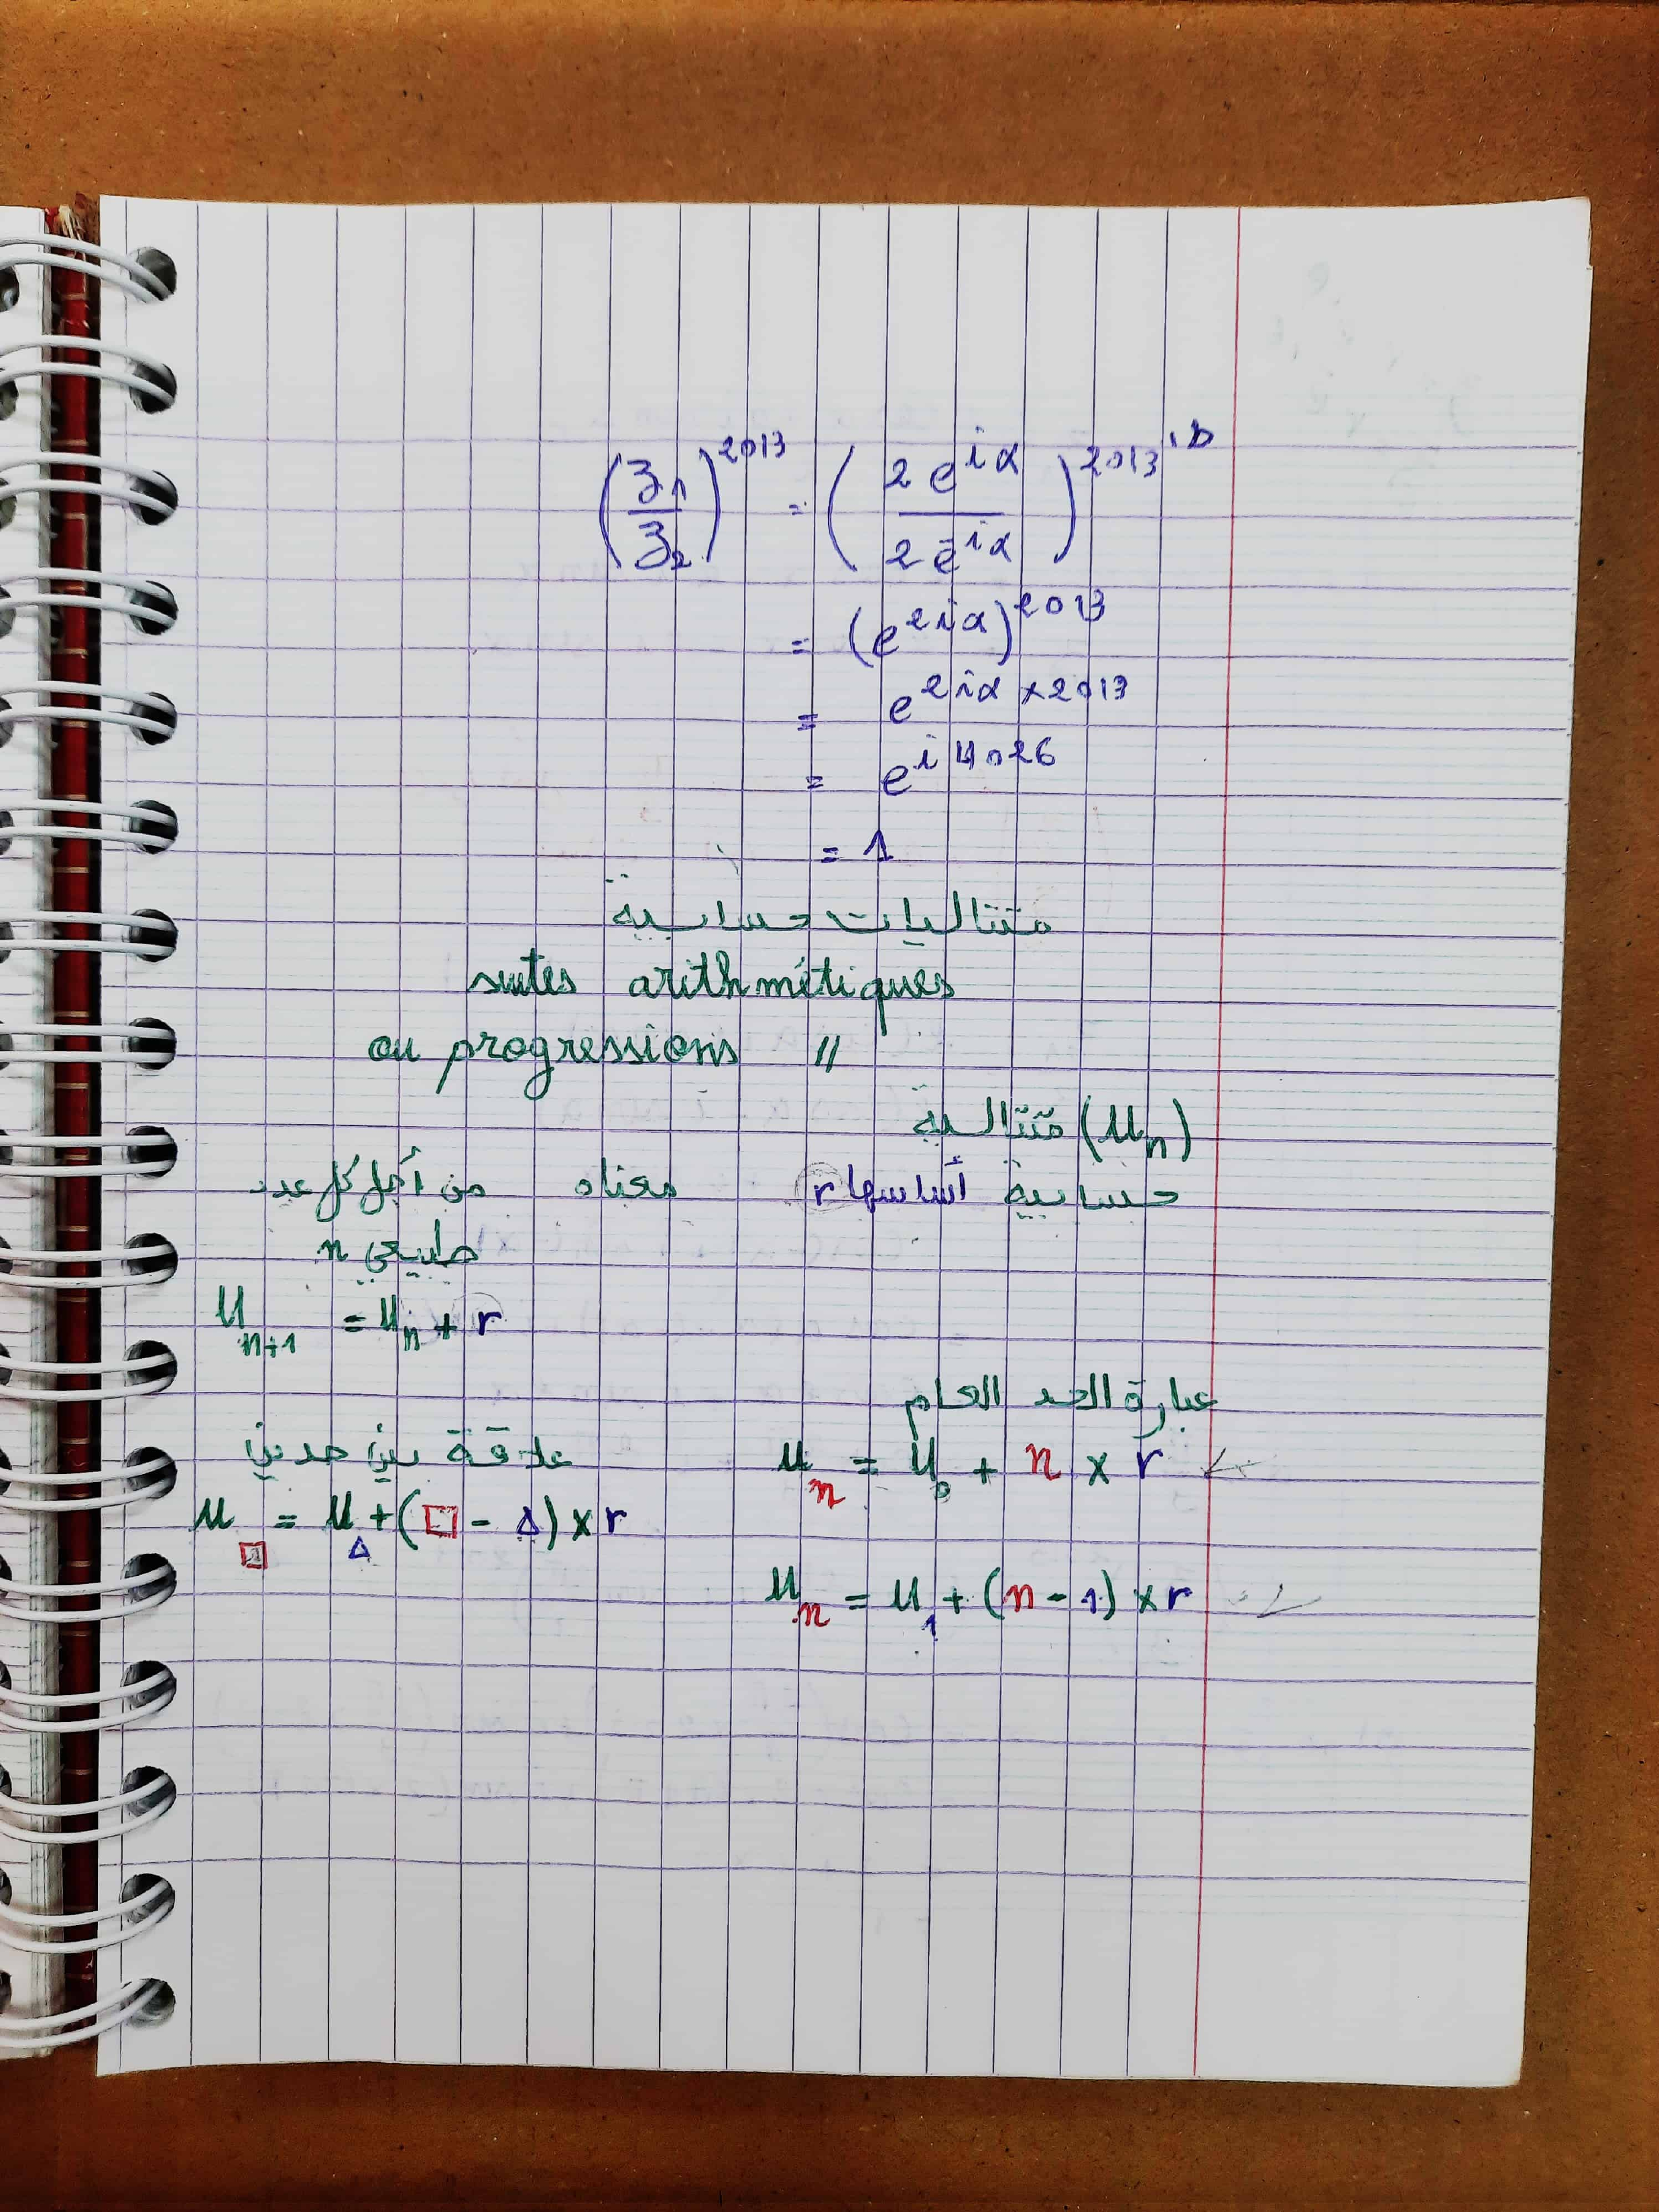 (z₁/z₂)^2013 = (2e^iα / 2e^-iα)^2013
= (e^2iα)^2013
= e^2iα×2013
= e^i4026
= 1
متتاليات حسابية
suites arithmétiques
ou progressions //
(Uₙ) متتالية
حسابية أساسها r معناه من أجل كل عدد
طبيعي n
U_n+1 = U_n + r
عبارة الحد العام
U_n = U_0 + n × r
علاقة بين حدين
U_□ = U_Δ + (□ - Δ) × r
U_n = U_1 + (n - 1) × r